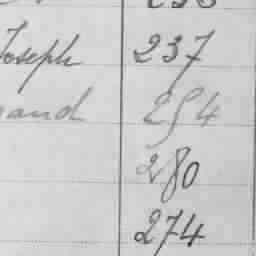 Joseph 237
and 254
280
274